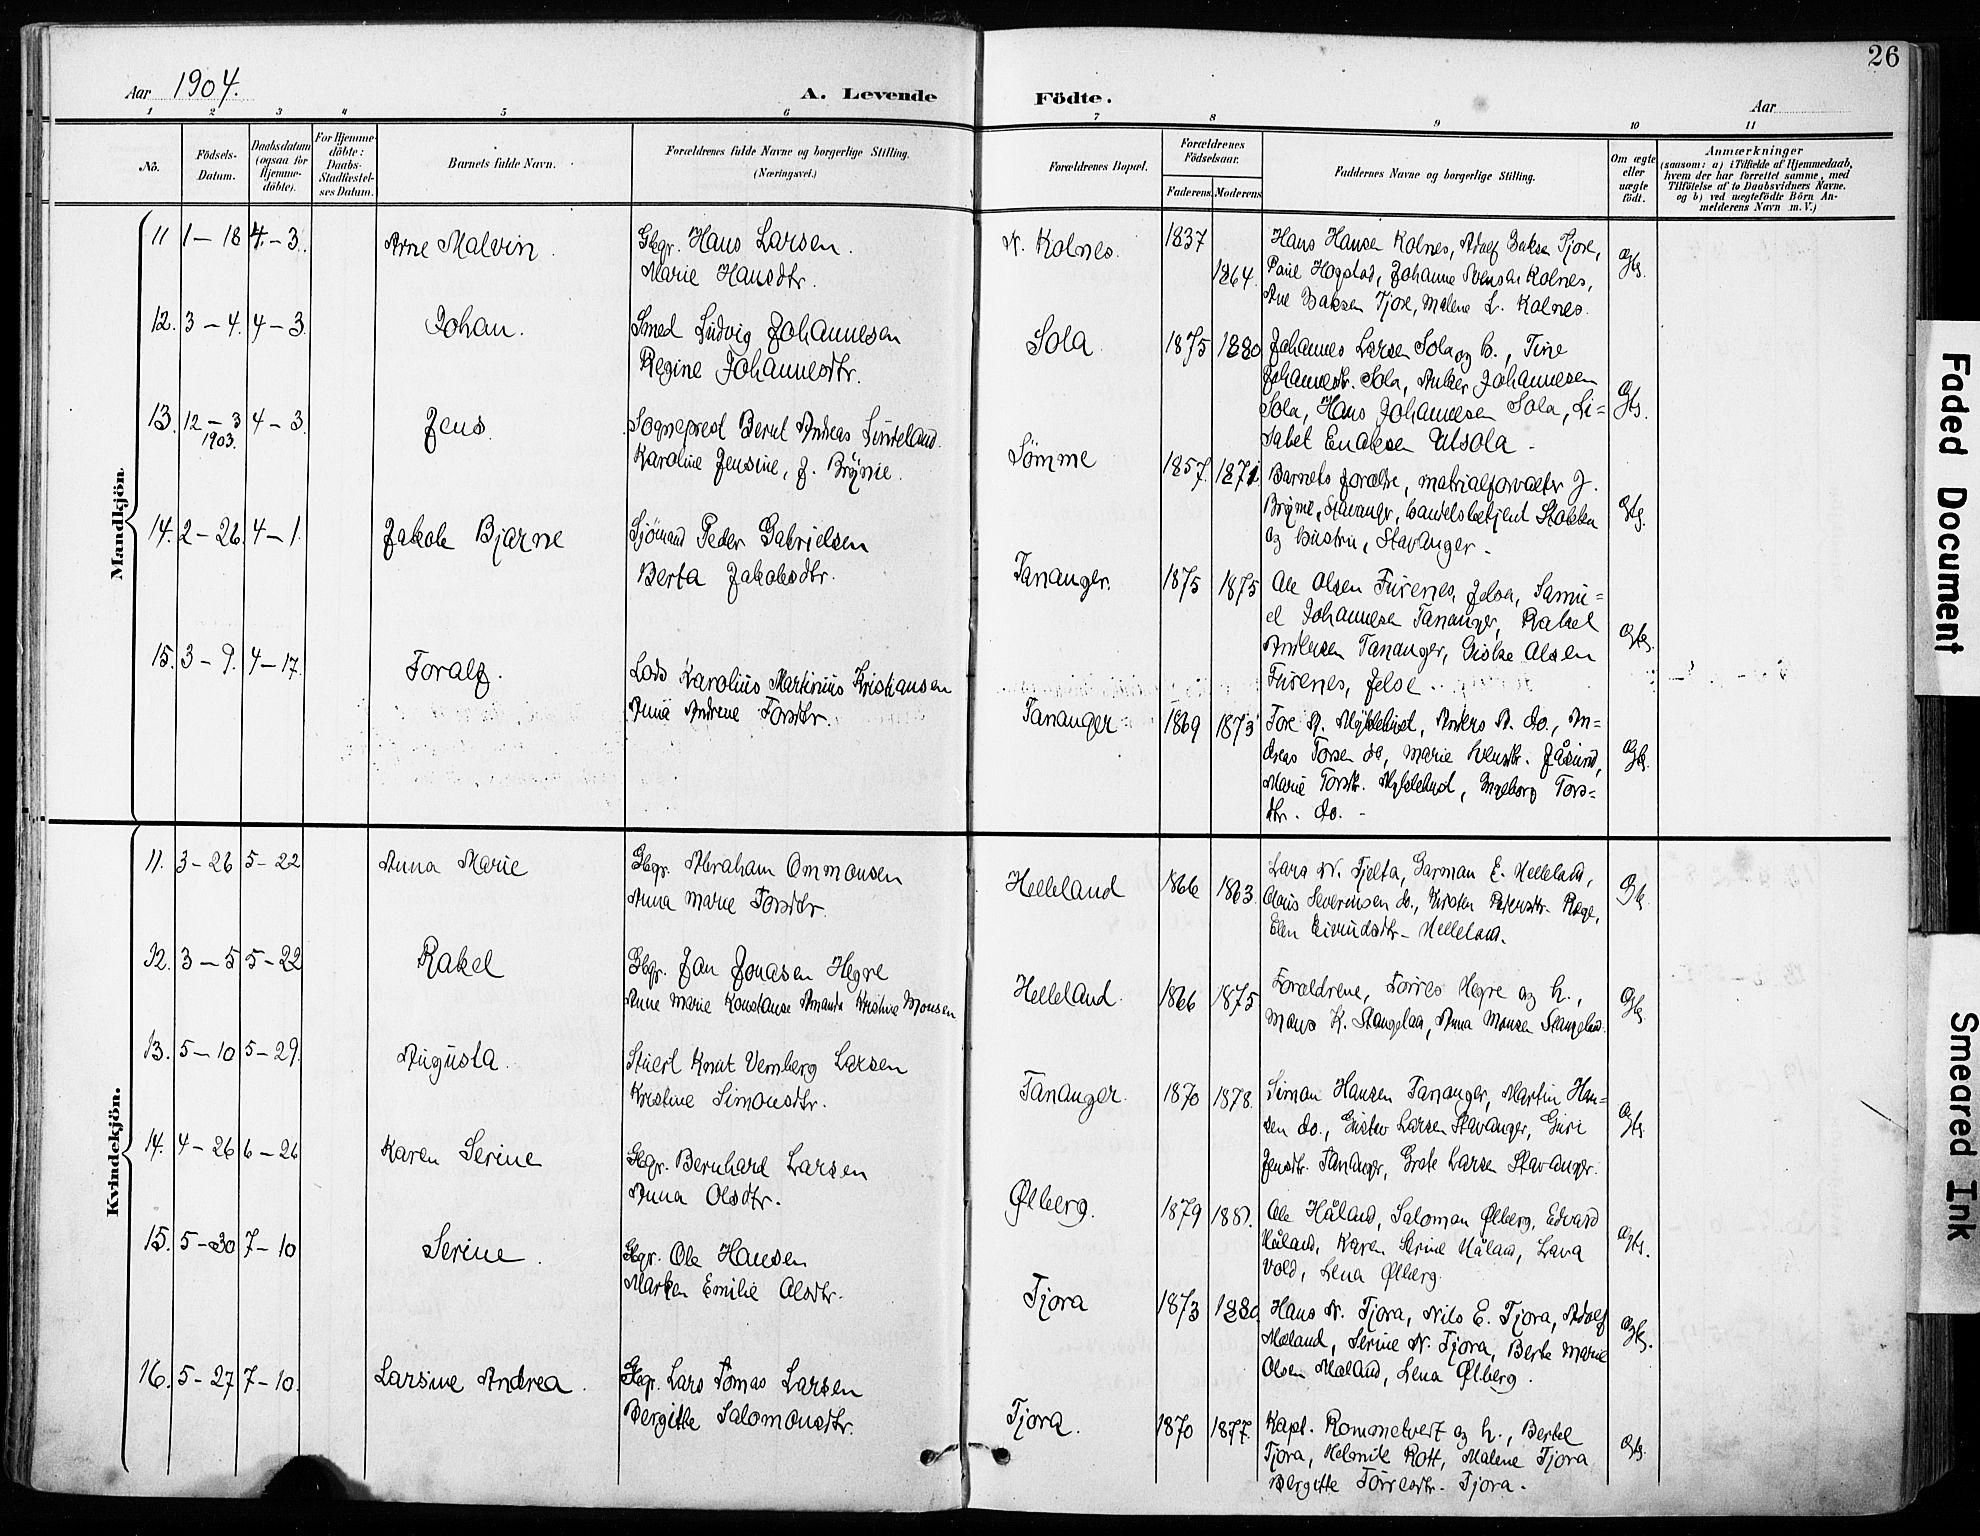 26
Aar 1904.
A. Levende Födte.
Aar
1 2 3 4 5 6 7 8 9 10 11
No.
Födsels-Datum.
Daabsdatum (ogsaa for Hjemme-döbte).
For Hjemme-döbte: Daabs-Stadfæstel-ses Datum.
Barnets fulde Navn.
Forældrenes fulde Navne og borgerlige Stilling.
(Næringsvei.)
Forældrenes Bopæl.
Forældrenes Födselsaar.
Faderens. Moderens.
Faddernes Navne og borgerlige Stilling.
Om ægte eller uægte födt.
Anmærkninger
(saasom: a) i Tilfælde af Hjemmedaab,
hvem der har forrettet samme, med
Tilföielse af to Daabsvidners Navne.
og b) ved uægtefödte Börn An-
melderens Navn m. V.)
Mandkjön.
11 1-18 4-3. Arne Malvin. Gbgr. Hans Larsen.
Marie Hansdtr.
N. Kolnes. 1837 1864. Hans Hansen Kolnes, Adolf Baksen Tjore,
Paul Hogstad, Johanne Svensen Kolnes,
Ane Baksen Tjore, Malene L. Kolnes.
12. 3-4. 4-3. Johan. Smed Ludvig Johannesen
Regine Johannesdtr.
Sola. 1875 1880 Johannes Larsen Sola og h., Tine
Johannesdtr. Sola, Anker Johannesen
Sola, Hans Johannesen Sola, Li=
sabet Enaksen Utsola -
13. 12-3 1903. 4-3. Jens. Sogneprest Bernt Andreas
Karoline Jensine, J. Bryne.
Sömme 1857. 1871. Barnets forældre, matrialforvalter J.
Bryne, Stavanger, handelsbetjent Stokken
og hustru, Stavanger -
14. 2-26. 4-1. Jakob Bjarne Sjömand Peder Gabrielsen
Berta Jakobsdtr.
Tananger. 1875 1875 Ole Olsen Furenes, Jelsa, Samu=
el Johannesen Tananger, Rakel
Andersen Tananger, Giske Olsen
Furenes, Jelse.
15. 3-9. 4-17. Toralf. Lods Karolius Martinius Kristiansen
Anna Andrene Torsdtr.
Tananger 1869 1873 Tore A. Myklebust, Anders A. do., An=
dreas Torsen do, Marie Jåsund,
Marie Torsdtr. Myklebust, Ingeborg Tors=
dtr. do. -
Kvindekjön.
11. 3-26 5-22 Anna Marie Gbgr. Abraham Ommonsen
Anna Marie Torsdtr.
Helleland 1866 1863. Lars N. Tjelta, Garman E. Helleland,
Severinsen do., Kirsten Petersdtr. Rege,
Elen Eivindsdtr. Helleland.
12. 3-5 5-22 Rakel Gbgr. Jan Jonasen Hegre
Anne Marie Konstanse Amanda Kristine Monsen
Helleland. 1866 1875 Forældrene, Torres Hegre og h.,
Mons K. Stangeland, Anna Monsen Stangeland.
13. 5-10 5-29. Augusta. Stuert Knut Vernberg Larsen
Kristine Simonsdtr.
Tananger. 1870 1878. Simon Hansen Tananger, Martin Han=
sen do., Gustav Larsen Stavanger, Guri
Jensdtr. Tananger, Grete Larsen Stavanger.
14. 4-26 6-26 Karen Serine Gbgr. Bernhard Larsen
Anna Olsdtr.
Ølberg. 1879 1881. Ole Håland, Saloman Ølberg, Edvard
Håland, Karen Serine Håland, Lava
Vold, Lena Ølberg.
15. 5-30 7-10 Serine. Gbgr. Ole Hansen
Marken Emilie Olsdtr.
Tjora 1873 1880 Hans N. Tjora, Nils E. Tjora, Adolf
Meland, Serine N. Tjora, Berta Marie
Olsen Meland, Lena Ølberg.
16. 5-27 7-10. Larsine Andrea. Gbgr. Lars Tomas Larsen
Bergitte Salomonsdtr.
Tjora. 1870 1877. Kapt. Rommetveit og h., Bertel
Tjora, Helmik Rott, Malene Tjora
Bergitte Torresdtr. Tjora.
Faded Document
Smeared Ink